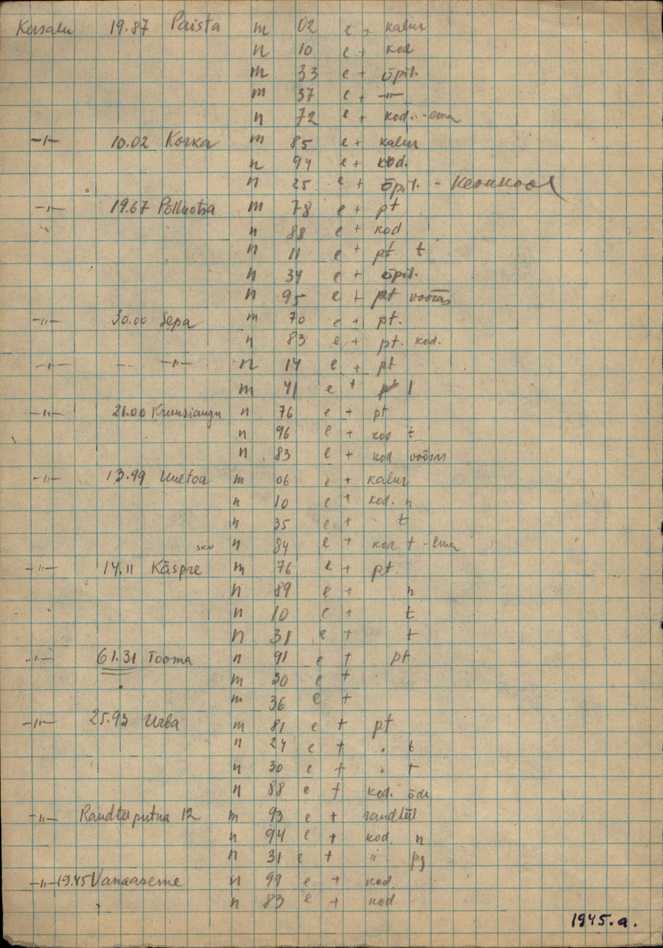 19.87 Paista m 02 e + kalur
n 10 e + kod
m 33 e + õpil.
m 37 e + -"-
n 72 e + kod. - ema
-"- 10.02 Korka m 85 e + kalur
n 94 e + kod.
n 25 e + õpil. -
-"- 19.67 m 78 e + pt
n 88 e + kod
n 11 e + pt t
n 34 e + õpil.
n 95 e + pt võõras
-"- 30.00 Sepa m 70 e + pt.
n 83 e + pt. kod.
-"- -"- n 14 e + pt
m 41 e +
-"- 21.00 n 76 e + pt
n 96 e + kod t
n 83 e + kod võõras
-"- 13.99 Uuetoa m 06 e + kalur
n 10 e + kod. n
n 35 e + t
n 84 e + kod t - ema
-"- 14.11 Käspre m 76 e + pt
n 89 e + n
n 10 e + t
n 31 e + t
-"- 61.31 Tooma n 91 e + pt
m 30 e +
m 36 e +
-"- 25.93 Urba m 81 e + pt
n 24 e + " t
n 30 e + " t
n 88 e + kod. õde
-"- 12 m 93 e +
n 94 e + kod. n
n 31 e + " pg
-"- 19.45 Vanaaseme n 99 e + kod.
n 83 e + kod
1945.a.